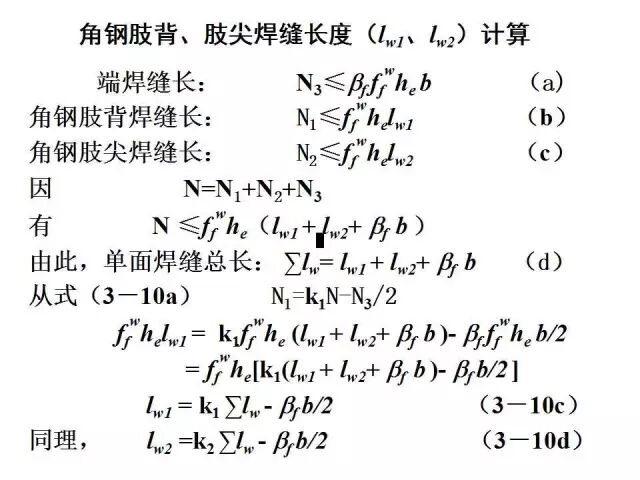 角钢肢背、肢尖焊缝长度（l_{w1}、l_{w2}）计算
端焊缝长： N₃≤β_f f_f^w h_e b （a）
角钢肢背焊缝长： N₁≤f_f^w h_e l_{w1} （b）
角钢肢尖焊缝长： N₂≤f_f^w h_e l_{w2} （c）
因 N=N₁+N₂+N₃
有 N ≤f_f^w h_e（l_{w1}+l_{w2}+ β_f b）
由此，单面焊缝总长：∑l_w= l_{w1}+ l_{w2}+ β_f b （d）
从式（3－10a） N₁=k₁N-N₃/2
f_f^w h_e l_{w1} = k₁f_f^w h_e (l_{w1}+ l_{w2}+ β_f b )- β_f f_f^w h_e b/2
= f_f^w h_e[k₁(l_{w1}+ l_{w2}+ β_f b )- β_f b/2]
l_{w1} = k₁∑l_w - β_f b/2 （3－10c）
同理， l_{w2} =k₂∑l_w - β_f b/2 （3－10d）